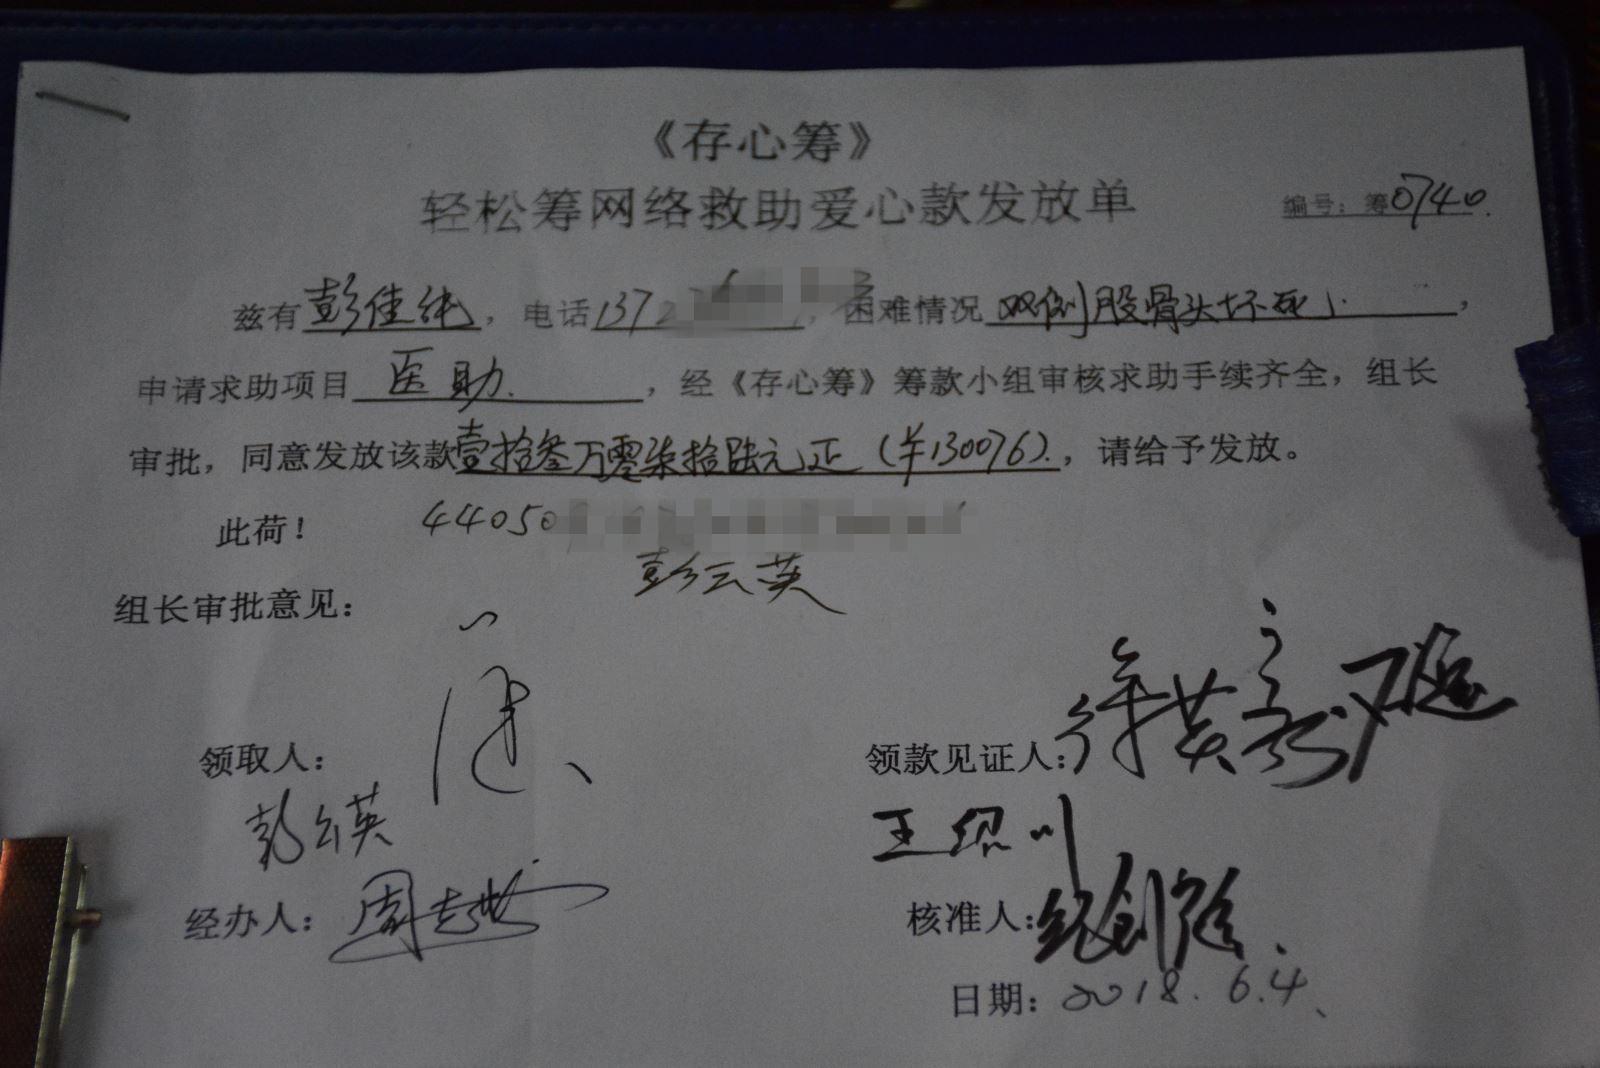 《存心筹》
轻松筹网络救助爱心款发放单
编号：筹0740.
兹有彭佳纯，电话1372，困难情况双侧股骨头坏死，
申请求助项目医助.，经《存心筹》筹款小组审核求助手续齐全，组长
审批，同意发放该款壹拾叁万零柒拾陆元正（￥130076），请给予发放。
此荷！ 44050
彭云英
组长审批意见：
领取人： 领款见证人：
彭云英 王绍川
经办人： 核准人：
日期：2018.6.4